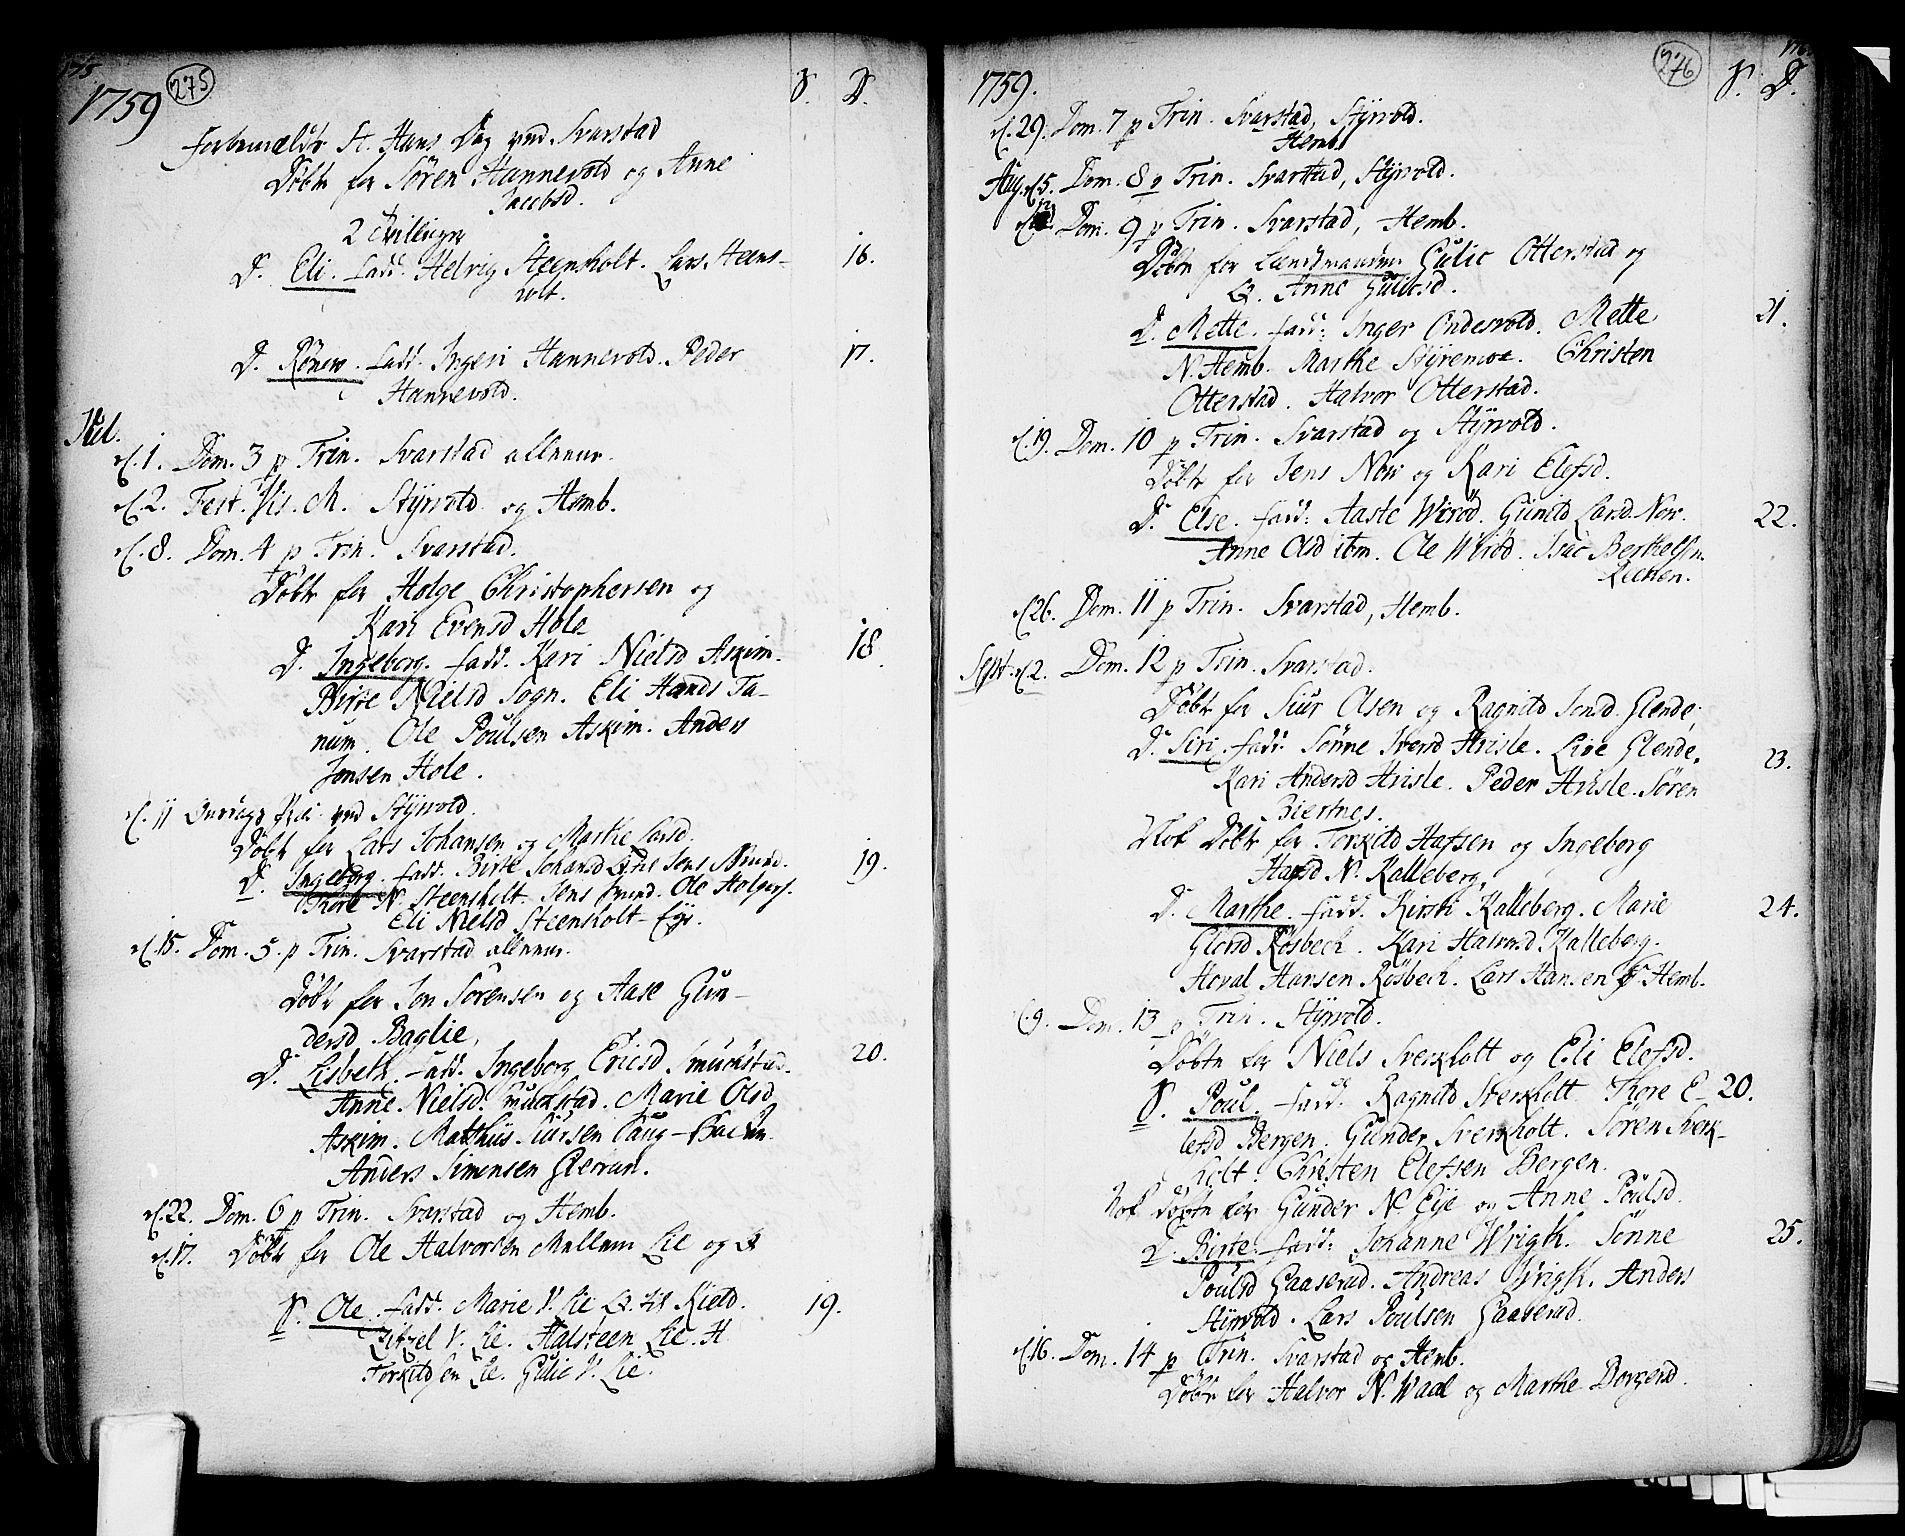 1759 275 S. D.
forbemældte St. Hans Dag ved Svarstad
Døbt for Sören Hannevold og Anne
Jacobsd.
2 Tvillinger
D. Eli. fadd. Helvig Steensholt. Lars Steens- 16.
holt.
D. Rönov. fadd. Ingeri Hannevold. Peder 17.
Hannevold.
Jul.
d. 1. Dom. 3 p Trin. Svarstad allene.
d. 2. Fest. Vis. M. Styrvold og Hemb.
d. 8. Dom. 4 p Trin. Svarstad.
Døbt for Holge Christophersen og
Kari Evensd Hole
D. Ingeborg. fadd. Kari Nielsd Askim. 18.
Birte Nielsd Sogn. Eli Hansd Ta-
num. Ole Poulsen Askim. Anders
Jonsen Hole.
d. 11 Onsdags Præk: ved Styrvold.
Døbt for Lars Johansen og Marthe Larsd.
D. Ingeborg. fadd. Birte Johansd Jens Brund. 19.
N. Steensholt. Jens Brund. Ole Holgers.
Eli Nielsd Steensholt-Eye.
d. 15. Dom. 5. p Trin. Svarstad allene.
Døbt for Jon Sörensen og Aase Gun-
dersd Baglie,
D. Lisbeth. fadd. Ingeborg Ericsd Smuchstad. 20.
Anne Nielsd. Smuchstad. Marie Olsd
Askim. Matthis Siursen Haug-Backen.
Anders Simensen Gierran.
d. 22. Dom. 6 p Trin. Svarstad og Hemb.
d. 17. Døbt for Ole Halvorsen Mellem Lie og Q
S. Ole. fadd. Marie V. Lie Q. til Kield. 19.
V. Lie. Halsteen Lie. H
Torkildsen Lie. Gulic V. Lie.
1759. 276 S. D.
d. 29. Dom. 7 p Trin. Svarstad, Styrvold.
Hemb.
Aug. d. 5. Dom. 8 p Trin. Svarstad, Styrvold.
d. 12 Dom. 9 p Trin. Svarstad, Hemb.
Døbt for Landmanden Gulic Otterstad og
Q. Anne Gulicsd.
D. Mette. fadd: Inger Endesvold. Mette 21.
N. Hemb. Marthe Styremoe. Christen
Otterstad. Halvor Otterstad.
d. 19. Dom. 10 p Trin. Svarstad og Styrvold.
Døbt for Jens Now og Kari Elefsd.
D. Else. fadd: Aaste Wiröd. Gunild Larsd. Now. 22.
Anne Olsd ibm. Ole Wiröd. Isac Berthelsen
d. 26. Dom. 11 p Trin. Svarstad, Hemb.
Sept. d. 2. Dom. 12 p Trin. Svarstad.
Døbt for Siur Olsen og Ragnild Jonsd. Glende;
D. Siri. fadd: Sönne Iversd Hvisle. Live Glende. 23.
Kari Andersd Hvisle. Peder Hvisle. Sören
Biertnes.
Nok Døbt for Torkild Hafsen og Ingeborg
Hansd N. Kalleberg,
D. Marthe. fadd. Kirsti Kalleberg. Marie 24.
Glorsd Rösbech. Kari Halvorsd Kalleberg.
Hoval Hansen Rösbech. Lars Hansen Hemb.
d. 9. Dom. 13 p Trin. Styrvold.
Døbte for Niels Sverkholt og Eli Elefsd.
S. Poul. fadd. Ragnild Sverkholt. Thore E- 20.
lefsd Bergen. Gunder Sverkholt. Sören Sverk-
holt. Christen Elefsen Bergen.
Nok Døbte for Gunder N. Eye og Anne Poulsd.
D. Birte. fadd: Johanne Wrigh. Sönne 25.
Poulsd Gaaserud. Andreas Wrigh. Anders
Styrvold. Lars Poulsen Gaaserud.
d. 16. Dom. 14 p Trin. Svarstad og Hemb.
Døbt for Halvor N. Waal og Marthe Borgersd.